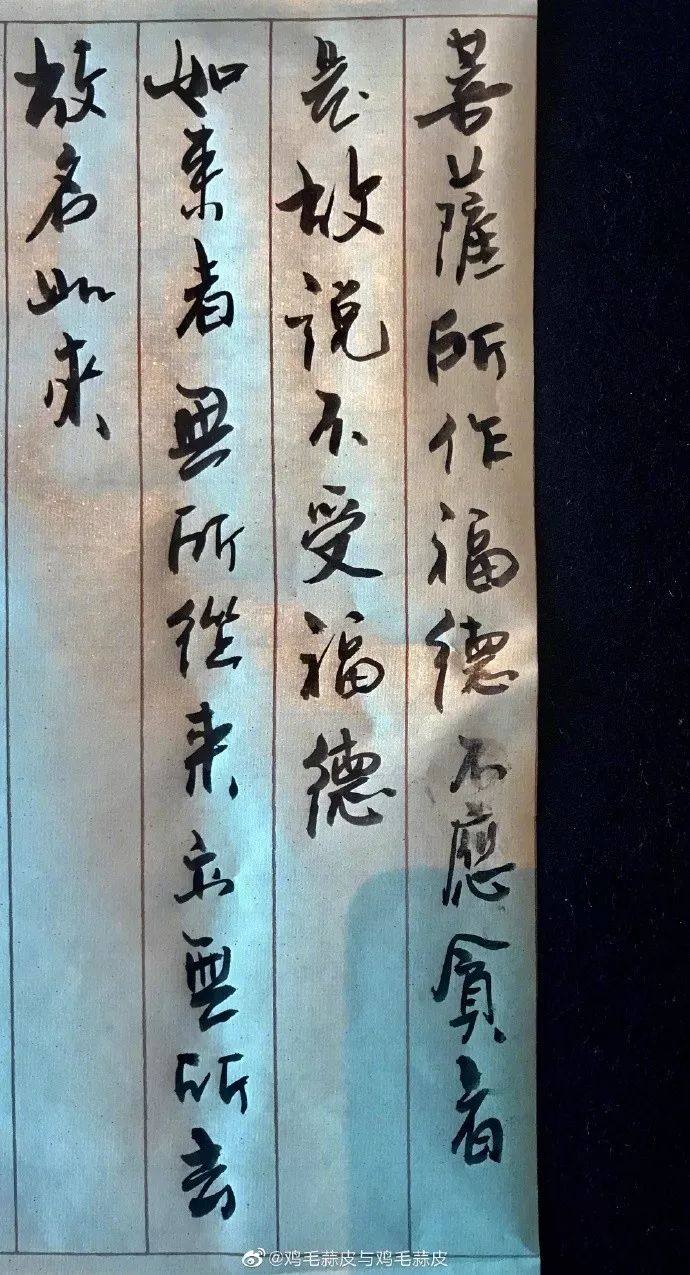 菩薩所作福德不應貪著
是故说不受福德
如来者無所從来亦無所去
故名如來
@鸡毛蒜皮与鸡毛蒜皮